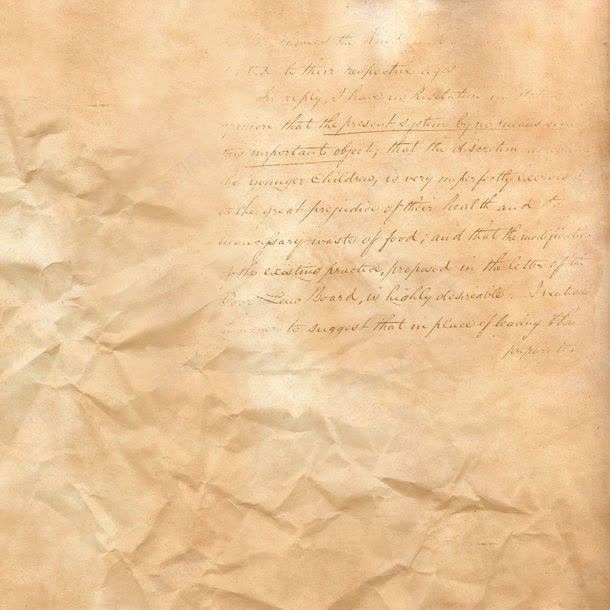 the
to their respective
In reply, I have no hesitation in
opinion that the present system by no means
this important object; that the discretion
younger Children, is very imperfectly
to the great prejudice of their health and
waste of food; and that the modification
the existing practice, proposed in the letter of the
Poor Law Board, is highly desireable. I venture
to suggest that in place of leaving the